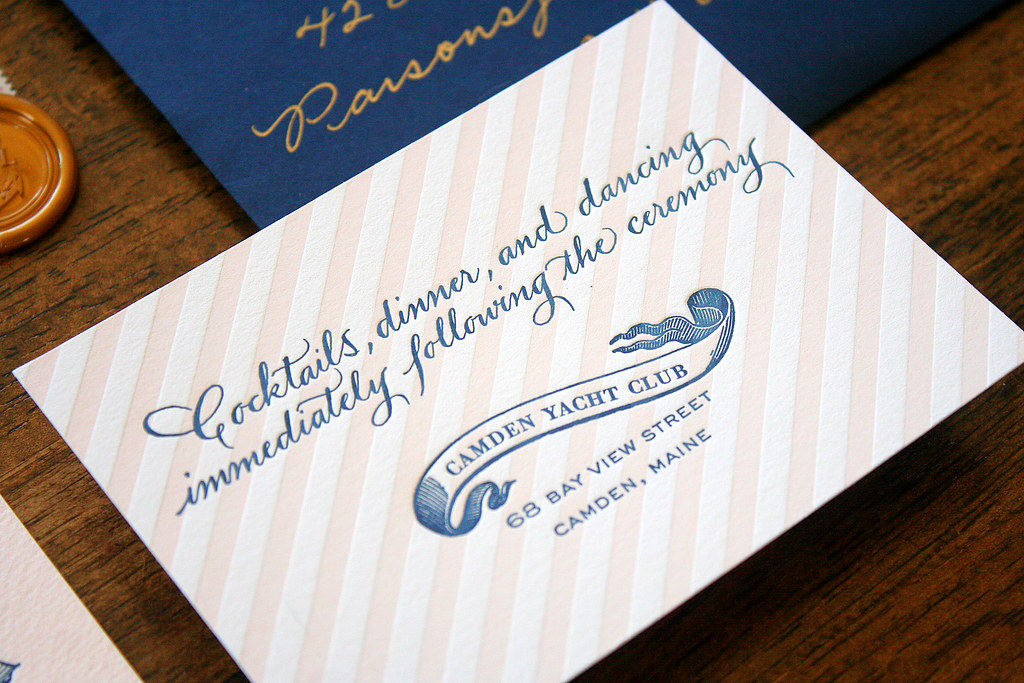 42
Cocktails, dinner, and dancing
immediately following the ceremony
CAMDEN YACHT CLUB
68 BAY VIEW STREET
CAMDEN, MAINE